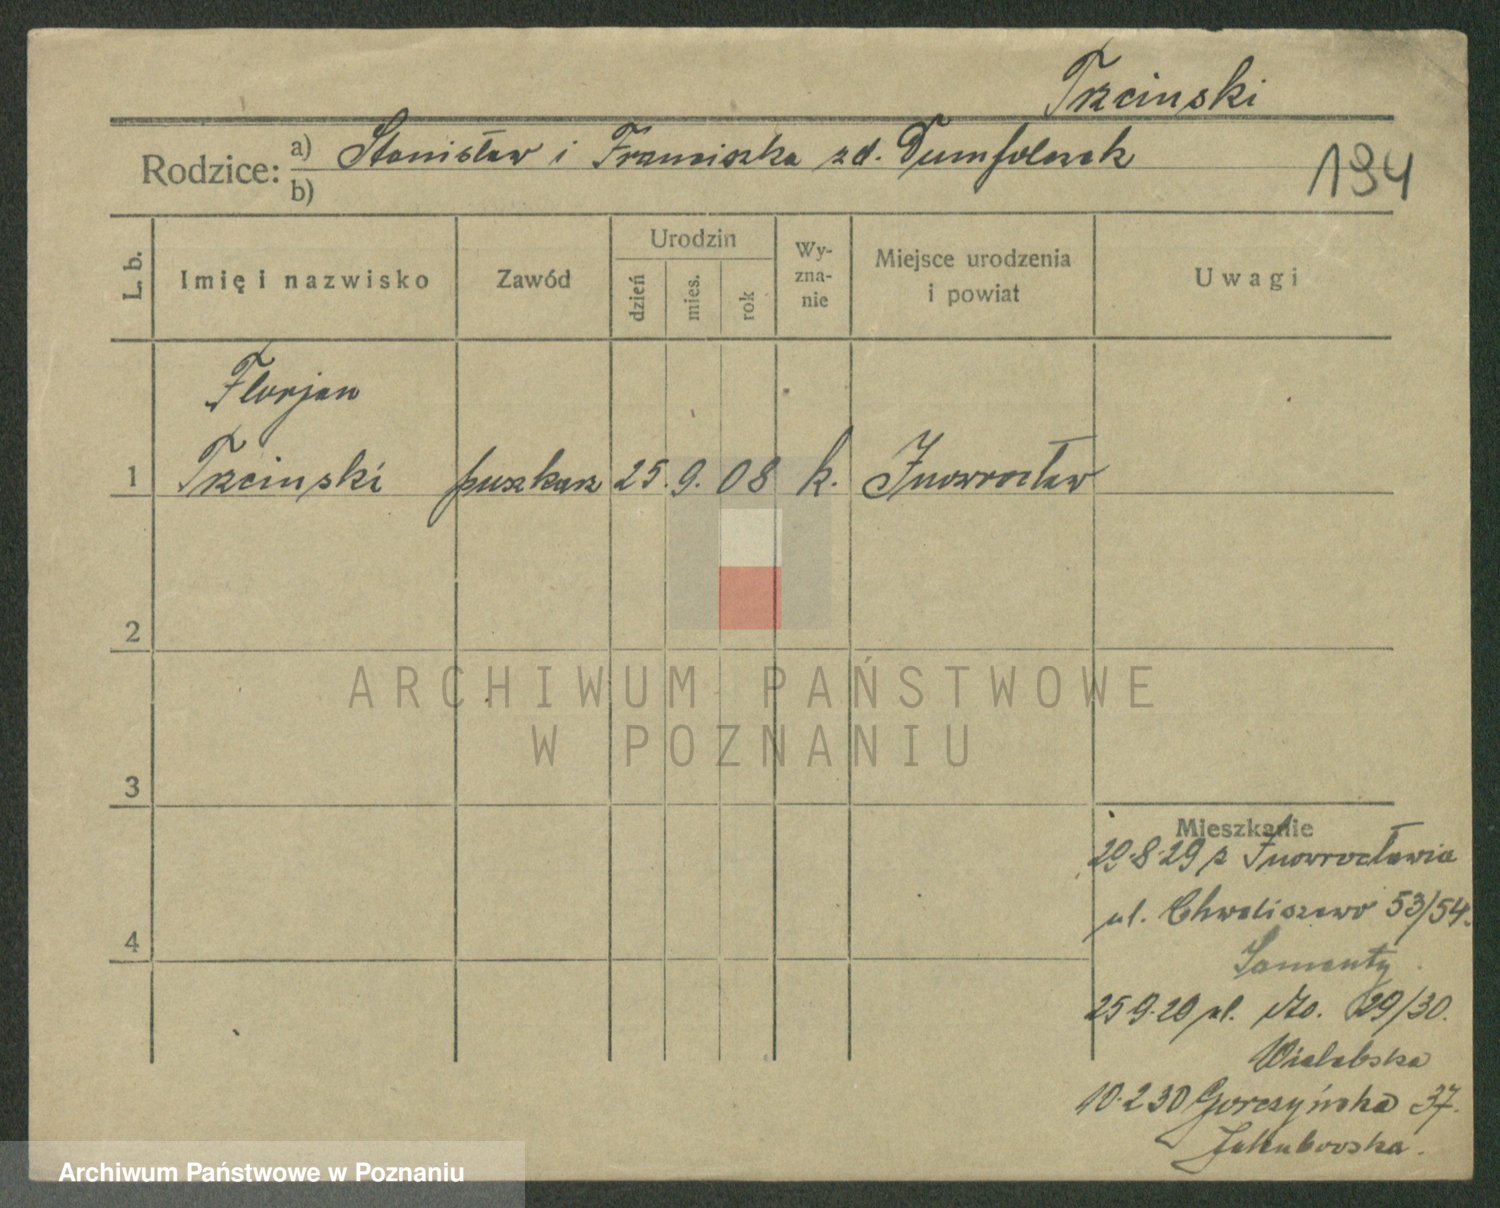 Trzcinski
Rodzice: a) Stanisław i Franciszka zd.
b)
194
L. b.
Imię i nazwisko
Zawód
Urodzin
dzień
mies.
rok
Wy-
zna-
nie
Miejsce urodzenia
i powiat
Uwagi
Florjan
1 Trzcinski puszkarz 25. 9. 08 k. Inowrocław
2
ARCHIWUM PAŃSTWOWE
W POZNANIU
3
Mieszkanie
29·8·29 z Inowrocławia
ul. Chwaliszewo 53/54.
4
25 9·29 ul. 29/30.
10·2 30 Gorczyńska 37.
Jakubowska.
Archiwum Państwowe w Poznaniu